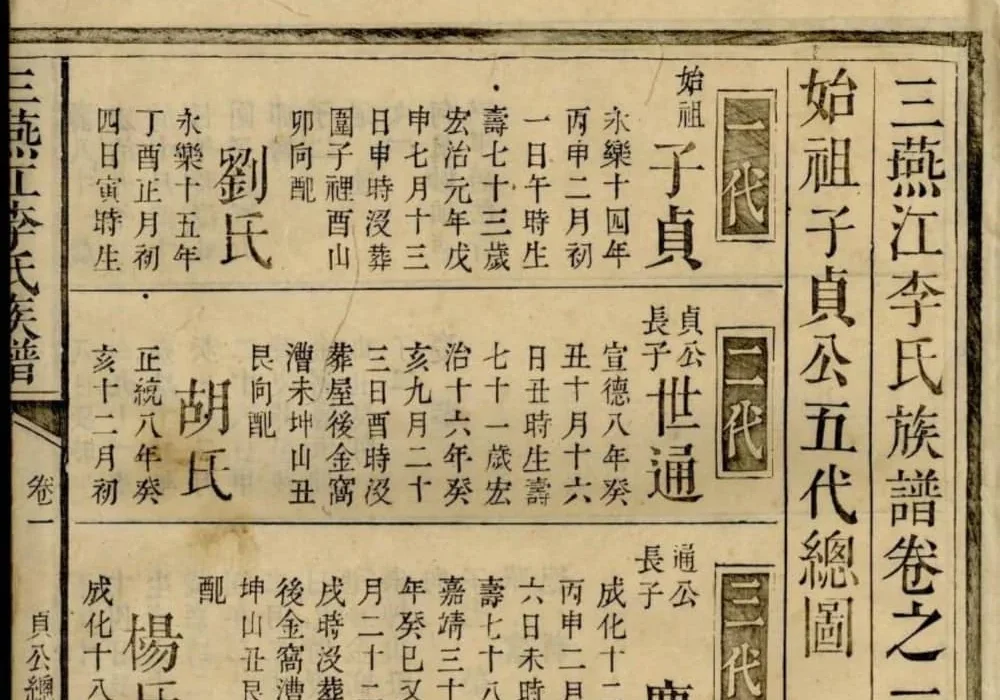 三燕江李氏族譜卷之一
始祖子貞公五代總圖
一代
始祖
子貞
永樂十四年
丙申二月初
一日午時生
壽七十三歲
宏治元年戊
申七月十三
日申時沒葬
圍子裡酉山
卯向配
劉氏
永樂十五年
丁酉正月初
四日寅時生
二代
貞公
長子
世通
宣德八年癸
丑十月十六
日丑時生壽
七十一歲宏
治十六年癸
亥九月二十
三日酉時沒
葬屋後金窩
漕未坤山丑
艮向配
胡氏
正統八年癸
亥十二月初
三代
通公
長子
成化十二
丙申二月
六日未時
壽七十八
嘉靖三十
年癸巳又
月二十二
戌時沒葬
後金窩漕
坤山丑艮
配
楊氏
成化十八
三燕江李氏族譜
卷一
貞公總